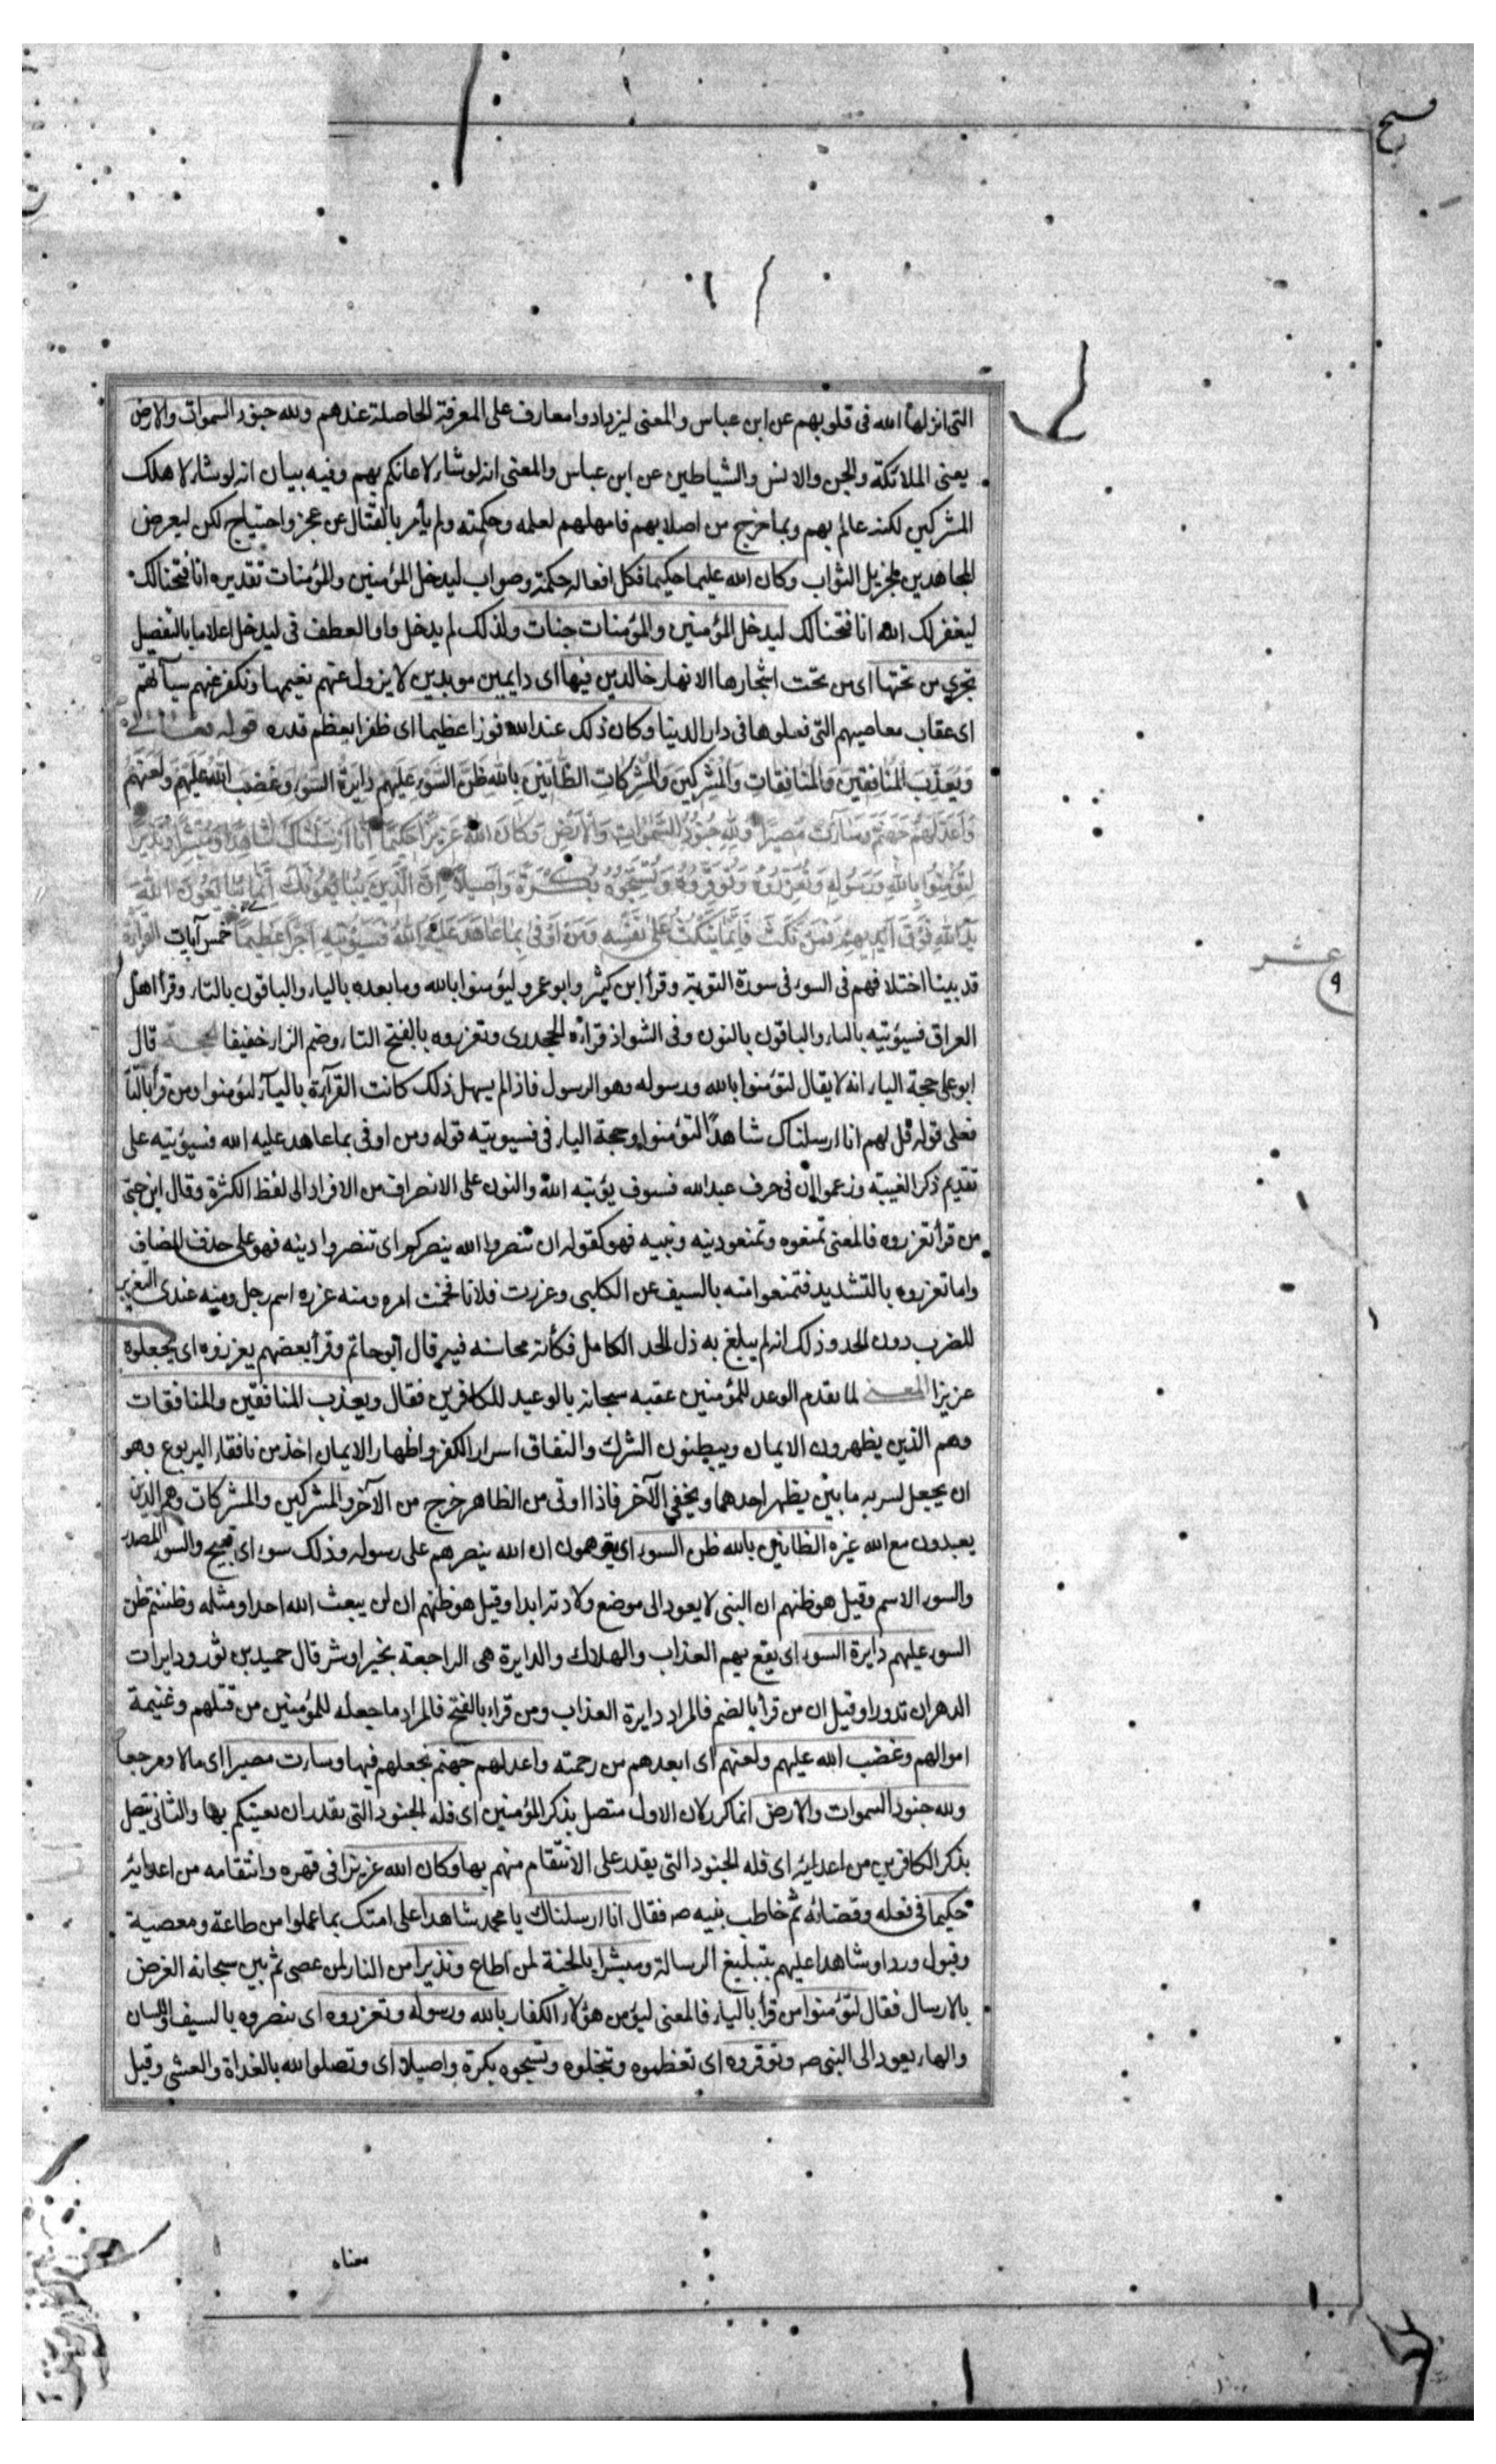 التى انزلها الله فى قلوبهم عن ابن عباس والمعنى ليزدادوا معارف على المعرفة الحاصلة عندهم ولله جنود السموات والارض
يعنى الملائكة والجن والانس والشياطين عن ابن عباس والمعنى انه لو شاء لاعانكم بهم وفيه بيان انه لو شاء لاهلك
المشركين لكنه عالم بهم وبما خرج من اصلابهم فامهلهم لعلمه وحكمته ولم يأمر بالقتال عن عجز واحتياج لكن ليعرض
المجاهدين لجزيل الثواب وكان الله عليما حكيما فكل افعاله حكمة وصواب ليدخل المؤمنين والمؤمنات تقديره انا فتحنا لك
ليغفر لك الله انا فتحنا لك ليدخل المؤمنين والمؤمنات جنات ولذلك لم يدخل واو العطف فى ليدخل اعلاما بالتفصيل
تجرى من تحتها اى من تحت اشجارها الانهار خالدين فيها اى دايمين موبدين لا يزول عنهم نعيمها ونكفر عنهم سيآتهم
اى عقاب معاصيهم التى فعلوها فى دار الدنيا وكان ذلك عند الله فوزا عظيما اى ظفرا يعظم قدره قوله تعالى
وَيُعَذِّبَ المُنَافِقِينَ وَالمُنَافِقَاتِ وَالمُشْرِكِينَ وَالمُشْرِكَاتِ الظَّانِّينَ بِاللهِ ظَنَّ السَّوْءِ عَلَيْهِمْ دَايِرَةُ السَّوْءِ وَغَضِبَ اللهُ عَلَيْهِمْ وَلَعَنَهُمْ
وَاَعَدَّ لَهُمْ جَهَنَّمَ وَسَآءَتْ مَصِيرًا وَلِلّهِ جُنُودُ السَّمَوَاتِ وَالأَرْضِ وَكَانَ اللهُ عَزِيزًا حَكِيمًا اِنَّا اَرْسَلْنَاكَ شَاهِدًا وَمُبَشِّرًا وَنَذِيرًا
لِتُؤْمِنُوا بِاللهِ وَرَسُولِهِ وَتُعَزِّرُوهُ وَتُوَقِّرُوهُ وَتُسَبِّحُوهُ بُكْرَةً وَاَصِيلاً اِنَّ الَّذِينَ يُبَايِعُونَكَ اِنَّمَا يُبَايِعُونَ اللهَ
يَدُ اللهِ فَوْقَ اَيْدِيهِمْ فَمَنْ نَكَثَ فَاِنَّمَا يَنْكُثُ عَلَى نَفْسِهِ وَمَنْ اَوْفَى بِمَا عَاهَدَ عَلَيْهُ اللهَ فَسَيُؤْتِيهِ اَجْرًا عَظِيمًا خمس آيات القراءة
قد بينا اختلافهم فى السوء فى سورة التوبة وقرأ ابن كثير وابو عمرو ليؤمنوا بالله وما بعده بالياء والباقون بالتاء وقرأ اهل
العراق فسيؤتيه بالياء والباقون بالنون وفى الشواذ قراءة الجحدرى وتعزروه بالفتح التاء وضم الزاء خفيفا الحجة قال
ابو على حجة الياء انه لا يقال لتؤمنوا بالله ورسوله وهو الرسول فاذا لم يسهل ذلك كانت القرآءة بالياء ليؤمنوا ومن قرأ بالتا
فعلى قوله قل لهم انا ارسلناك شاهدًا لتؤمنوا وحجة الياء فى فسيوتيه قوله ومن اوفى بما عاهد عليه الله فسيؤتيه على
تقديم ذكر الغيبة وزعموا ان فى حرف عبد الله فسوف يؤتيه الله والنون على الانصراف من الافراد الى لفظ الكثرة وقال ابن جنى
من قرأ تعزروه فالمعنى تمنعوه وتمنعو دينه ونبيه فهو كقوله ان تنصروا الله ينصركم اى تنصروا دينه فهو على حذف المضاف
واما تعزروه بالتشديد فتمنعوا منه بالسيف عن الكلبى وعزرت فلانا فخمت امره ومنه عزره اسم رجل ومنه عندى التعزير
للضرب دون الحد وذلك انه لم يبلغ به ذل الحد الكامل فكأنه محاسنه فيه قال ابو حاتم وقرأ بعضهم يعززوه اى يجعلوه
عزيزا المعنى لما تقدم الوعد للمؤمنين عقبه سبحانه بالوعيد للكافرين فقال ويعذب المنافقين والمنافقات
وهم الذين يظهرون الايمان ويبطنون الشرك والنفاق اسرار الكفر واظهار الايمان اخذ من نافقاء اليربوع وهو
ان يجعل لسربه ما بين يظهر احدهما ويخفى الآخر فاذا اوتى من الظاهر خرج من الآخر والمشركين والمشركات وهم الذين
يعبدون مع الله غيره الظانين بالله ظن السوء اى يتوهمون ان الله ينصرهم على رسوله وذلك سوء اى قبيح والسوء المصدر
والسوء الاسم وقيل هو ظنهم ان النبى لا يعود الى موضع ولادته ابدا وقيل هو ظنهم ان لن يبعث الله احدا ومثله وظننتم ظن
السوء عليهم دايرة السوء اى يقع بهم العذاب والهلاك والدايرة هى الراجعة بخير او شر قال حميد بن ثور ودايرات
الدهر ان تدورا وقيل ان من قرأ بالضم فالمراد دايرة العذاب ومن قراء بالفتح فالمراد ما جعله للمؤمنين من قتلهم وغنيمة
اموالهم وغضب الله عليهم ولعنهم اى ابعدهم من رحمته واعد لهم جهنم يجعلهم فيها وساءت مصيرا اى مالا ومرجعا
ولله جنود السموات والارض انما كرر لان الاول متصل بذكر المؤمنين اى فله الجنود التى يقدر ان يعينكم بها والثانى يتصل
بذكر الكافرين من اعدايه اى فله الجنود التى يقدر على الانتقام منهم بها وكان الله عزيزا فى قهره وانتقامه من اعدايه
حكيما فى فعله وقضائه ثم خاطب نبيه ص فقال انا ارسلناك يا محمد شاهدا على امتك بما عملوا من طاعة ومعصية
وقبول ورد او شاهدا عليهم بتبليغ الرسالة ومبشرا بالجنة لمن اطاع ونذيرا من النار لمن عصى ثم بين سبحانه الغرض
بالارسال فقال لتؤمنوا من قرأ بالياء فالمعنى ليؤمن هؤلاء الكفار بالله ورسوله وتعزروه اى ينصروه بالسيف واللسان
والهاء يعود الى النبى ص وتوقروه اى تعظموه وتبجلوه وتسبحوه بكرة واصيلا اى وتصلوا لله بالغداة والعشى وقيل
عشر
٩
معناه